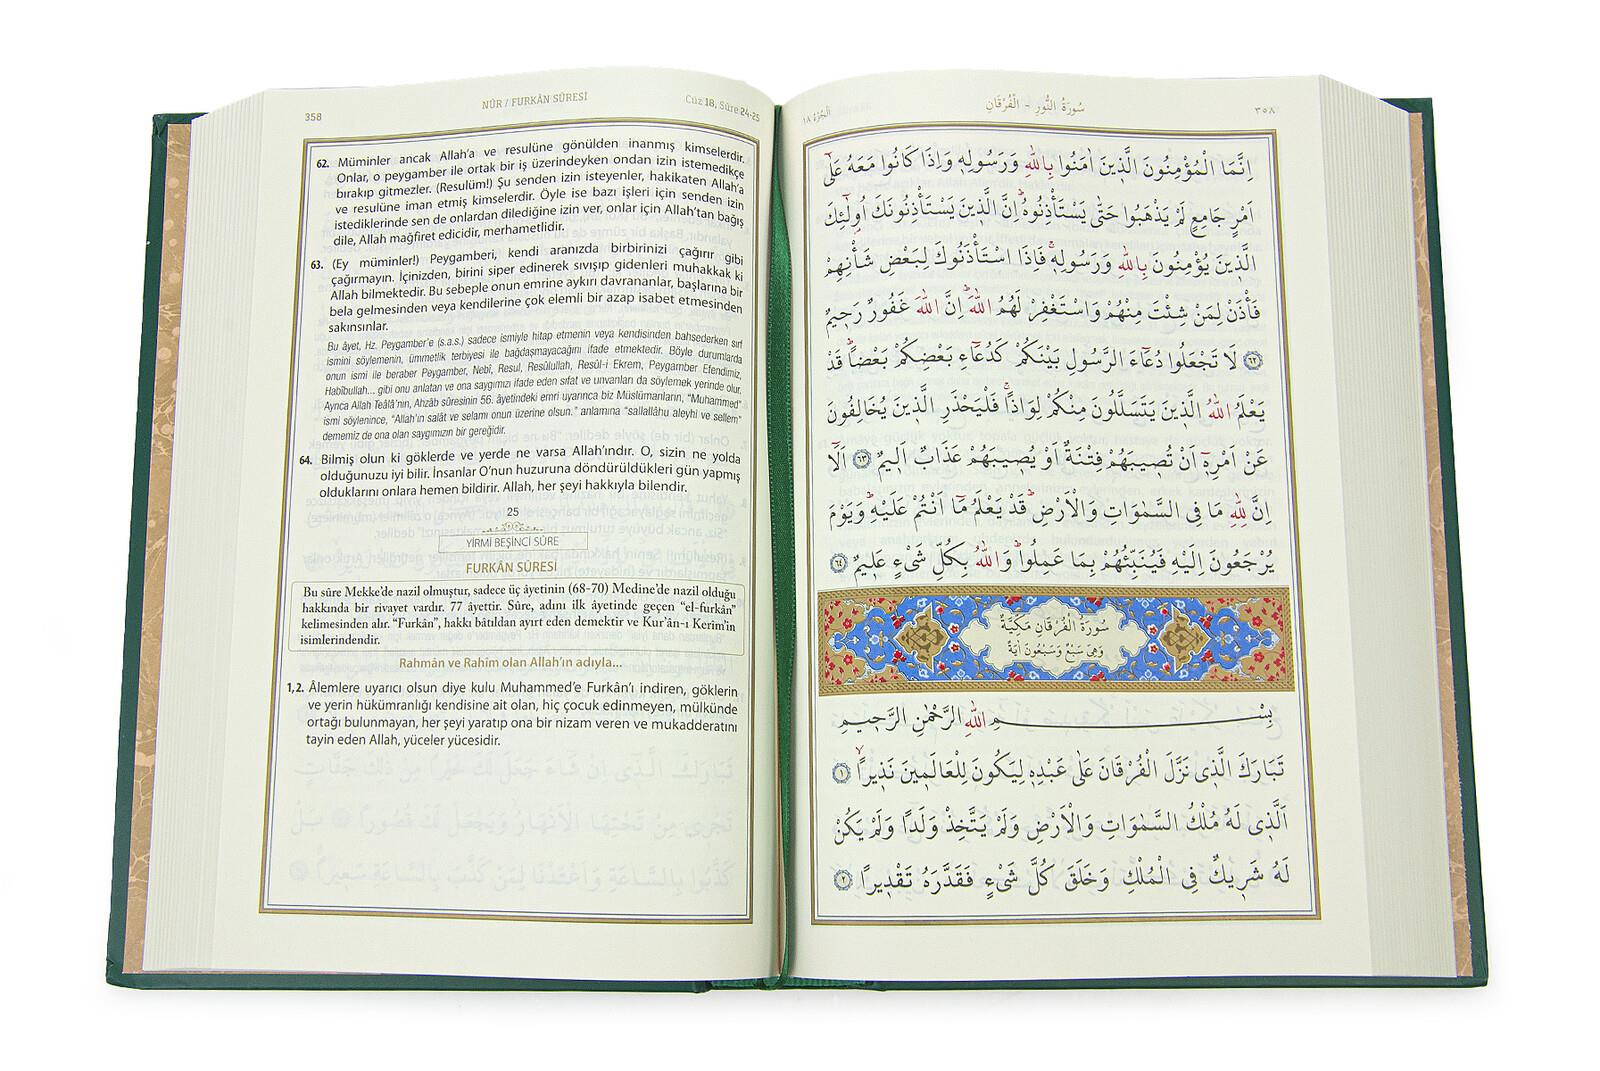 NÛR / FURKÂN SÛRESİ
Cüz 18, Sûre 24-25
358
62. Müminler ancak Allah'a ve resulüne gönülden inanmış kimselerdir.
Onlar, o peygamber ile ortak bir iş üzerindeyken ondan izin istemedikçe
bırakıp gitmezler. (Resulüm!) Şu senden izin isteyenler, hakikaten Allah'a
ve resulüne iman etmiş kimselerdir. Öyle ise bazı işleri için senden izin
istediklerinde sen de onlardan dilediğine izin ver, onlar için Allah'tan bağış
dile, Allah mağfiret edicidir, merhametlidir.
63. (Ey müminler!) Peygamberi, kendi aranızda birbirinizi çağırır gibi
çağırmayın. İçinizden, birini siper edinerek sıvışıp gidenleri muhakkak ki
Allah bilmektedir. Bu sebeple onun emrine aykırı davrananlar, başlarına bir
bela gelmesinden veya kendilerine çok elemli bir azap isabet etmesinden
sakınsınlar.
Bu âyet, Hz. Peygamber'e (s.a.s.) sadece ismiyle hitap etmenin veya kendisinden bahsederken sırf
ismini söylemenin, ümmetlik terbiyesi ile bağdaşmayacağını ifade etmektedir. Böyle durumlarda
onun ismi ile beraber Peygamber, Nebî, Resul, Resûlullah, Resûl-i Ekrem, Peygamber Efendimiz,
Habîbullah... gibi onu anlatan ve ona saygımızı ifade eden sıfat ve unvanları da söylemek yerinde olur.
Ayrıca Allah Teâlâ'nın, Ahzâb sûresinin 56. âyetindeki emri uyarınca biz Müslümanların, "Muhammed"
ismi söylenince, "Allah'ın salât ve selamı onun üzerine olsun." anlamına "sallallâhu aleyhi ve sellem"
dememiz de ona olan saygımızın bir gereğidir.
64. Bilmiş olun ki göklerde ve yerde ne varsa Allah'ındır. O, sizin ne yolda
olduğunuzu iyi bilir. İnsanlar O'nun huzuruna döndürüldükleri gün yapmış
olduklarını onlara hemen bildirir. Allah, her şeyi hakkıyla bilendir.
25
YİRMİ BEŞİNCİ SÛRE
FURKÂN SÛRESİ
Bu sûre Mekke'de nazil olmuştur, sadece üç âyetinin (68-70) Medine'de nazil olduğu
hakkında bir rivayet vardır. 77 âyettir. Sûre, adını ilk âyetinde geçen "el-furkân"
kelimesinden alır. "Furkân", hakkı bâtıldan ayırt eden demektir ve Kur'ân-ı Kerîm'in
isimlerindendir.
Rahmân ve Rahîm olan Allah'ın adıyla...
1,2. Âlemlere uyarıcı olsun diye kulu Muhammed'e Furkân'ı indiren, göklerin
ve yerin hükümranlığı kendisine ait olan, hiç çocuk edinmeyen, mülkünde
ortağı bulunmayan, her şeyi yaratıp ona bir nizam veren ve mukadderatını
tayin eden Allah, yüceler yücesidir.
٣٥٨
سُورَةُ النُّورِ - الْفُرْقَانِ
اَلْجُزْءُ ١٨
اِنَّمَا الْمُؤْمِنُونَ الَّذِينَ اٰمَنُوا بِاللّٰهِ وَرَسُولِهِ وَاِذَا كَانُوا مَعَهُ عَلٰٓى
اَمْرٍ جَامِعٍ لَمْ يَذْهَبُوا حَتّٰى يَسْتَأْذِنُوهُۜ اِنَّ الَّذِينَ يَسْتَأْذِنُونَكَ اُو۬لٰٓئِكَ
الَّذِينَ يُؤْمِنُونَ بِاللّٰهِ وَرَسُولِهِۚ فَاِذَا اسْتَأْذَنُوكَ لِبَعْضِ شَأْنِهِمْ
فَأْذَنْ لِمَنْ شِئْتَ مِنْهُمْ وَاسْتَغْفِرْ لَهُمُ اللّٰهَۜ اِنَّ اللّٰهَ غَفُورٌ رَحِيمٌ
﴿٦٢﴾ لَا تَجْعَلُوا دُعَٓاءَ الرَّسُولِ بَيْنَكُمْ كَدُعَٓاءِ بَعْضِكُمْ بَعْضًاۜ قَدْ
يَعْلَمُ اللّٰهُ الَّذِينَ يَتَسَلَّلُونَ مِنْكُمْ لِوَاذًاۚ فَلْيَحْذَرِ الَّذِينَ يُخَالِفُونَ
عَنْ اَمْرِهِٓ اَنْ تُصِيبَهُمْ فِتْنَةٌ اَوْ يُصِيبَهُمْ عَذَابٌ اَلِيمٌ ﴿٦٣﴾ اَلَٓا
اِنَّ لِلّٰهِ مَا فِي السَّمٰوَاتِ وَالْاَرْضِۜ قَدْ يَعْلَمُ مَٓا اَنْتُمْ عَلَيْهِۜ وَيَوْمَ
يُرْجَعُونَ اِلَيْهِ فَيُنَبِّئُهُمْ بِمَا عَمِلُواۜ وَاللّٰهُ بِكُلِّ شَيْءٍ عَلِيمٌ ﴿٦٤﴾
سُورَةُ الْفُرْقَانِ مَكِّيَّةٌ
وَهِيَ سَبْعٌ وَسَبْعُونَ اٰيَةً
بِسْمِ اللّٰهِ الرَّحْمٰنِ الرَّحِيمِ
تَبَارَكَ الَّذِي نَزَّلَ الْفُرْقَانَ عَلٰى عَبْدِهِ لِيَكُونَ لِلْعَالَمِينَ نَذِيرًاۙ ﴿١﴾
اَلَّذِي لَهُ مُلْكُ السَّمٰوَاتِ وَالْاَرْضِ وَلَمْ يَتَّخِذْ وَلَدًا وَلَمْ يَكُنْ
لَهُ شَرِيكٌ فِي الْمُلْكِ وَخَلَقَ كُلَّ شَيْءٍ فَقَدَّرَهُ تَقْدِيرًا ﴿٢﴾